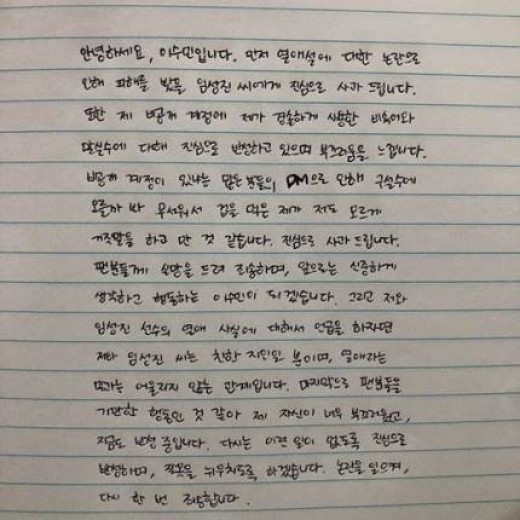 안녕하세요, 이수민입니다. 먼저 열애설에 대한 논란으로
인해 피해를 받은 임성진 씨에게 진심으로 사과 드립니다.
또한 제 비공개 계정에 제가 경솔하게 사용한 비속어와
말실수에 대해 진심으로 반성하고 있으며 부끄러움을 느낍니다.
비공개 계정이 있냐는 많은 분들의 DM으로 인해 구설수에
오를까 봐 무서워서 겁을 먹은 제가 저도 모르게
거짓말을 하고 만 것 같습니다. 진심으로 사과 드립니다.
팬분들께 실망을 드려 죄송하며, 앞으로는 신중하게
생각하고 행동하는 이수민이 되겠습니다. 그리고 저와
임성진 선수의 열애 사실에 대해서 언급을 하자면
저와 임성진 씨는 친한 지인일 분이며, 열애라는
말과는 어울리지 않는 관계입니다. 마지막으로 팬분들을
기만한 행동인 것 같아 제 자신이 너무 부끄러웠고,
지금도 반성 중입니다. 다시는 이런 일이 없도록 진심으로
반성하며, 잘못을 뉘우치도록 하겠습니다. 논란을 일으켜,
다시 한 번 죄송합니다.